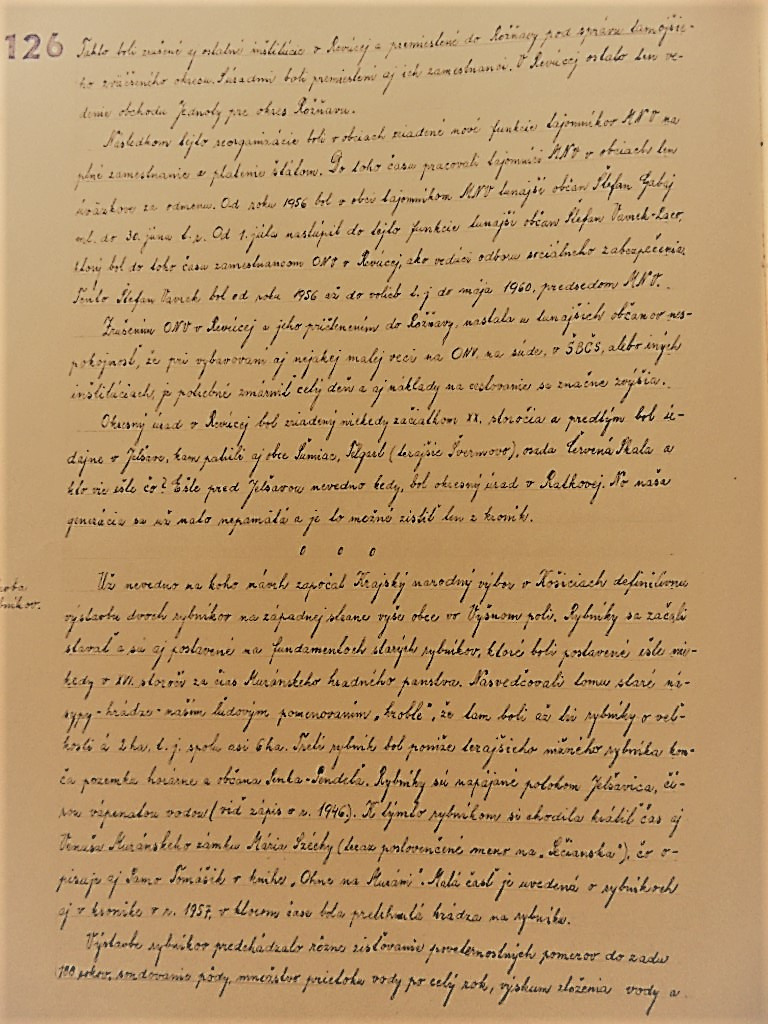 126
Takto boli zrušené aj ostatné inštitúcie v Revúcej a premiestené do Rožňavy pod správu tamojšie-
ho zväčšeného okresu. Súradmi boli premiestení aj ich zamestnanci. V Revúcej ostalo len ve-
denie obchodu Jednoty pre okres Rožňava.
Následkom tejto reorganizácie boli v obciach zriadené nové funkcie tajomníkov MNV na
plné zamestnanie a platenie štátom. Do toho času pracovali tajomníci MNV v obciach len
úväzkove za odmenu. Od roku 1956 bol v obci tajomníkom MNV tunajší občan Štefan Gabaj
ml. do 30. júna t. r. Od 1. júla nastúpil do tejto funkcie tunajší občan Štefan Vavrek-
ktorý bol do toho času zamestnancom ONV v Revúcej, ako vedúci odboru sociálneho zabezpečenia.
Tento Štefan Vavrek bol od roku 1956 až do volieb t. j. do mája 1960, predsedom MNV.
Zrušením ONV v Revúcej a jeho pričlenením do Rožňavy, nastala u tunajších občanov nes-
pokojnosť, že pri vybavovaní aj nejakej malej veci na ONV, na súde, v ŠBČS, alebo iných
inštitúciach, je potrebné zmárniť celý deň a aj náklady na cestovanie sa značne zvýšia.
Okresný úrad v Revúcej bol zriadený niekedy začiatkom XX. storočia a predtým bol ú-
dajne v Jelšave, kam patrili aj obce Šumiac, Telgárt (terajšie Švermovo), osada Červená Skala a
kto vie ešte čo? Ešte pred Jelšavou nevedno kedy, bol okresný úrad v Ratkovej. No naša
generácia sa už nato nepamätá a je to možné zistiť len z kroník.
o o o
Už nevedno na koho návrh započal Krajský národný výbor v Košiciach definitívnu
výstavbu dvoch rybníkov na západnej strane vyše obce vo Vyšnom poli. Rybníky sa začali
stavať a sú aj postavené na fundamentoch starých rybníkov, ktoré boli postavené ešte nie-
kedy v XVI. storočí za čias Muránskeho hradného panstva. Nasvedčovali tomu staré ná-
sypy-hrádze-našim ľudovým pomenovaním „hroble“, že tam boli až tri rybníky o veľ-
kosti á 2 ha, t. j. spolu asi 6 ha. Tretí rybník bol poniže terajšieho nižného rybníka kon-
ča pozemku horárne a občana Rybníky sú napájané potokom Jelšavica, či-
rou vápenatou vodou (viď zápis o r. 1946). K týmto rybníkom si chodila krátiť čas aj
Venuša Muránskeho zámku Mária Széchy (teraz poslovenčené meno na „Sečianska“), čo o-
pisuje aj Samo Tomášik v knihe „Ohne na Muráni“. Malá časť je uvedená o rybníkoch
aj v kronike v r. 1957, v ktorom čase bola pretrhnutá hrádza na rybníku.
Výstavbe rybníkov predchádzalo rôzne zisťovanie poveternostných pomerov do zadu
100 rokov, sondovanie pôdy, množstvo prietoku vody po celý rok, výskum zloženia vody a